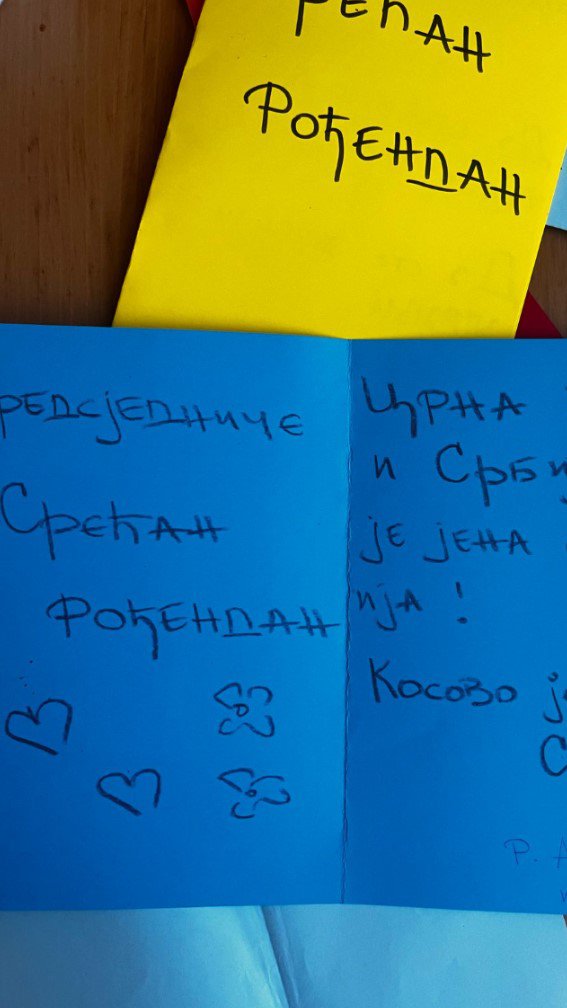 РЕЋАН
РОЂЕНДАН
РЕДСЈЕДНИЧЕ
СРЕЋАН
РОЂЕНДАН
ЦРНА
И СРБИ
ЈЕ ЈЕНА
ИЈА !
КОСОВО Ј
С
Р. А